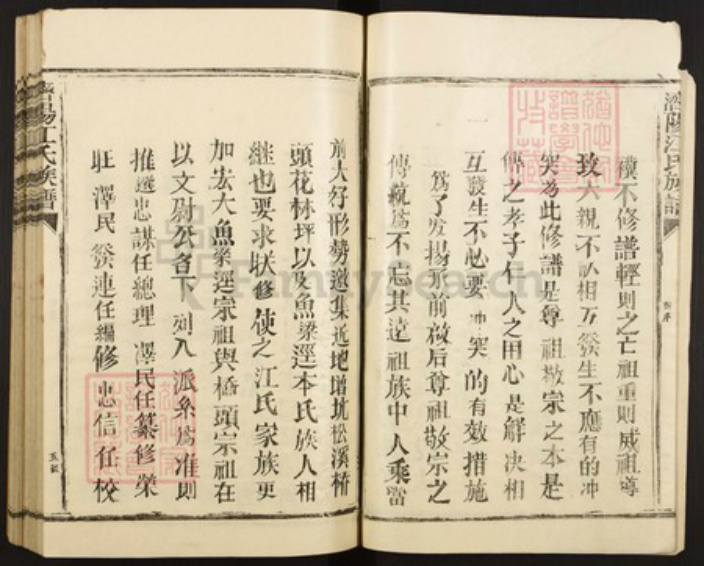 濟陽江氏族譜
積不修譜輕則之亡祖重則威祖導
致六親不認相互發生不應有的冲
突為此修譜是尊祖敬宗之本是
傳之孝子仁人之用心是解决相
互發生不必要冲突的有效措施
為了发揚承前啟后尊祖敬宗之
傳統為不忘其遠祖族中人乘當
前大好形勢邀集近地增坑松溪桥
頭花林坪以及魚梁逕本氏族人相
继也要求联修使之江氏家族更
加宏大魚梁逕宗祖與橋頭宗祖在
以文尉公名下列入派系為准則
推選忠謀任總理澤民任纂修榮
旺澤民發連任編修忠信任校
濟陽江氏族譜
FamilySearch